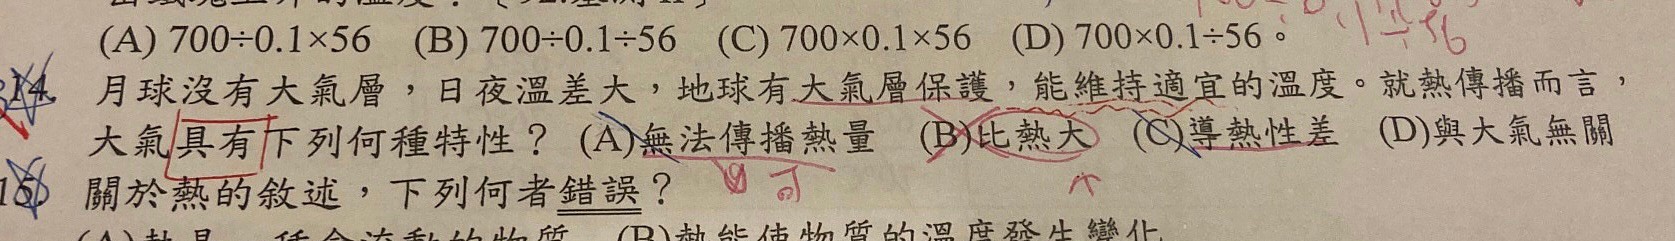 (A) 700÷0.1×56 (B) 700÷0.1÷56 (C) 700×0.1×56 (D) 700×0.1÷56。
14. 月球沒有大氣層，日夜溫差大，地球有大氣層保護，能維持適宜的溫度。就熱傳播而言，
大氣具有下列何種特性？ (A)無法傳播熱量 (B)比熱大 (C)導熱性差 (D)與大氣無關
15. 關於熱的敘述，下列何者錯誤？
(B)熱能使物質的溫度發生變化